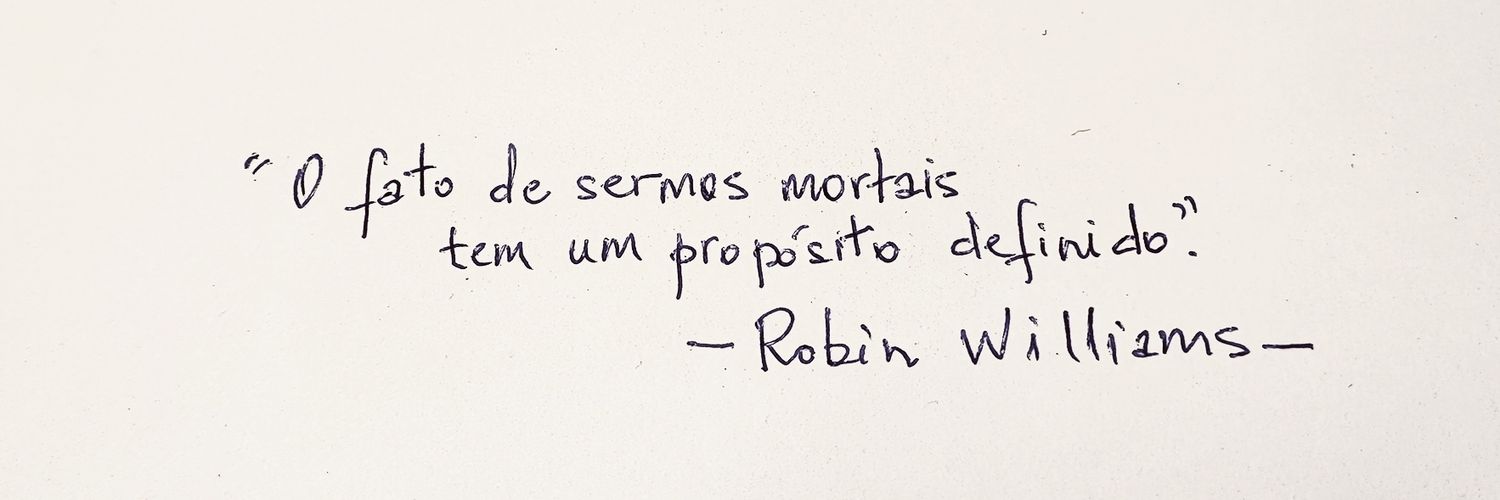 “O fato de sermos mortais
tem um propósito definido”.
—Robin Williams—